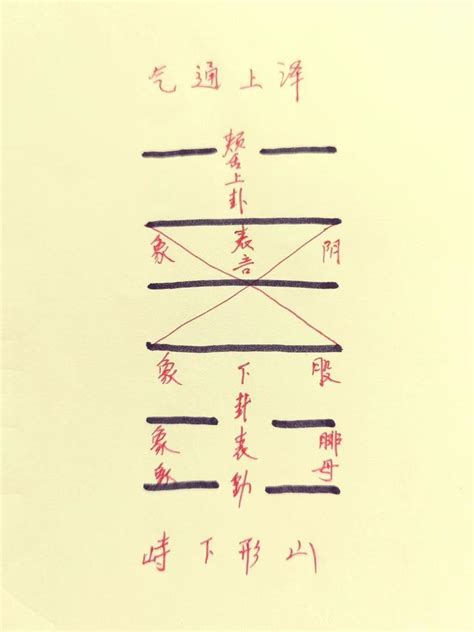 泽上通气
颊舌上卦表言
阴象
股象
下卦表动
腓象
母象
山形下峙